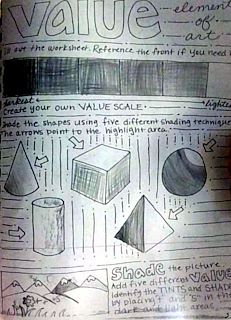 value element
of
art
out the worksheet. Reference the front if you need
darkest
Lightest
Create your own VALUE SCALE.
Shade the shapes using five different shading techniques
The arrows point to the highlight area.
Shade the picture
Add five different VALUE
Identify the TINTS and SHADE
by placing T and "S" in the
dark and light areas